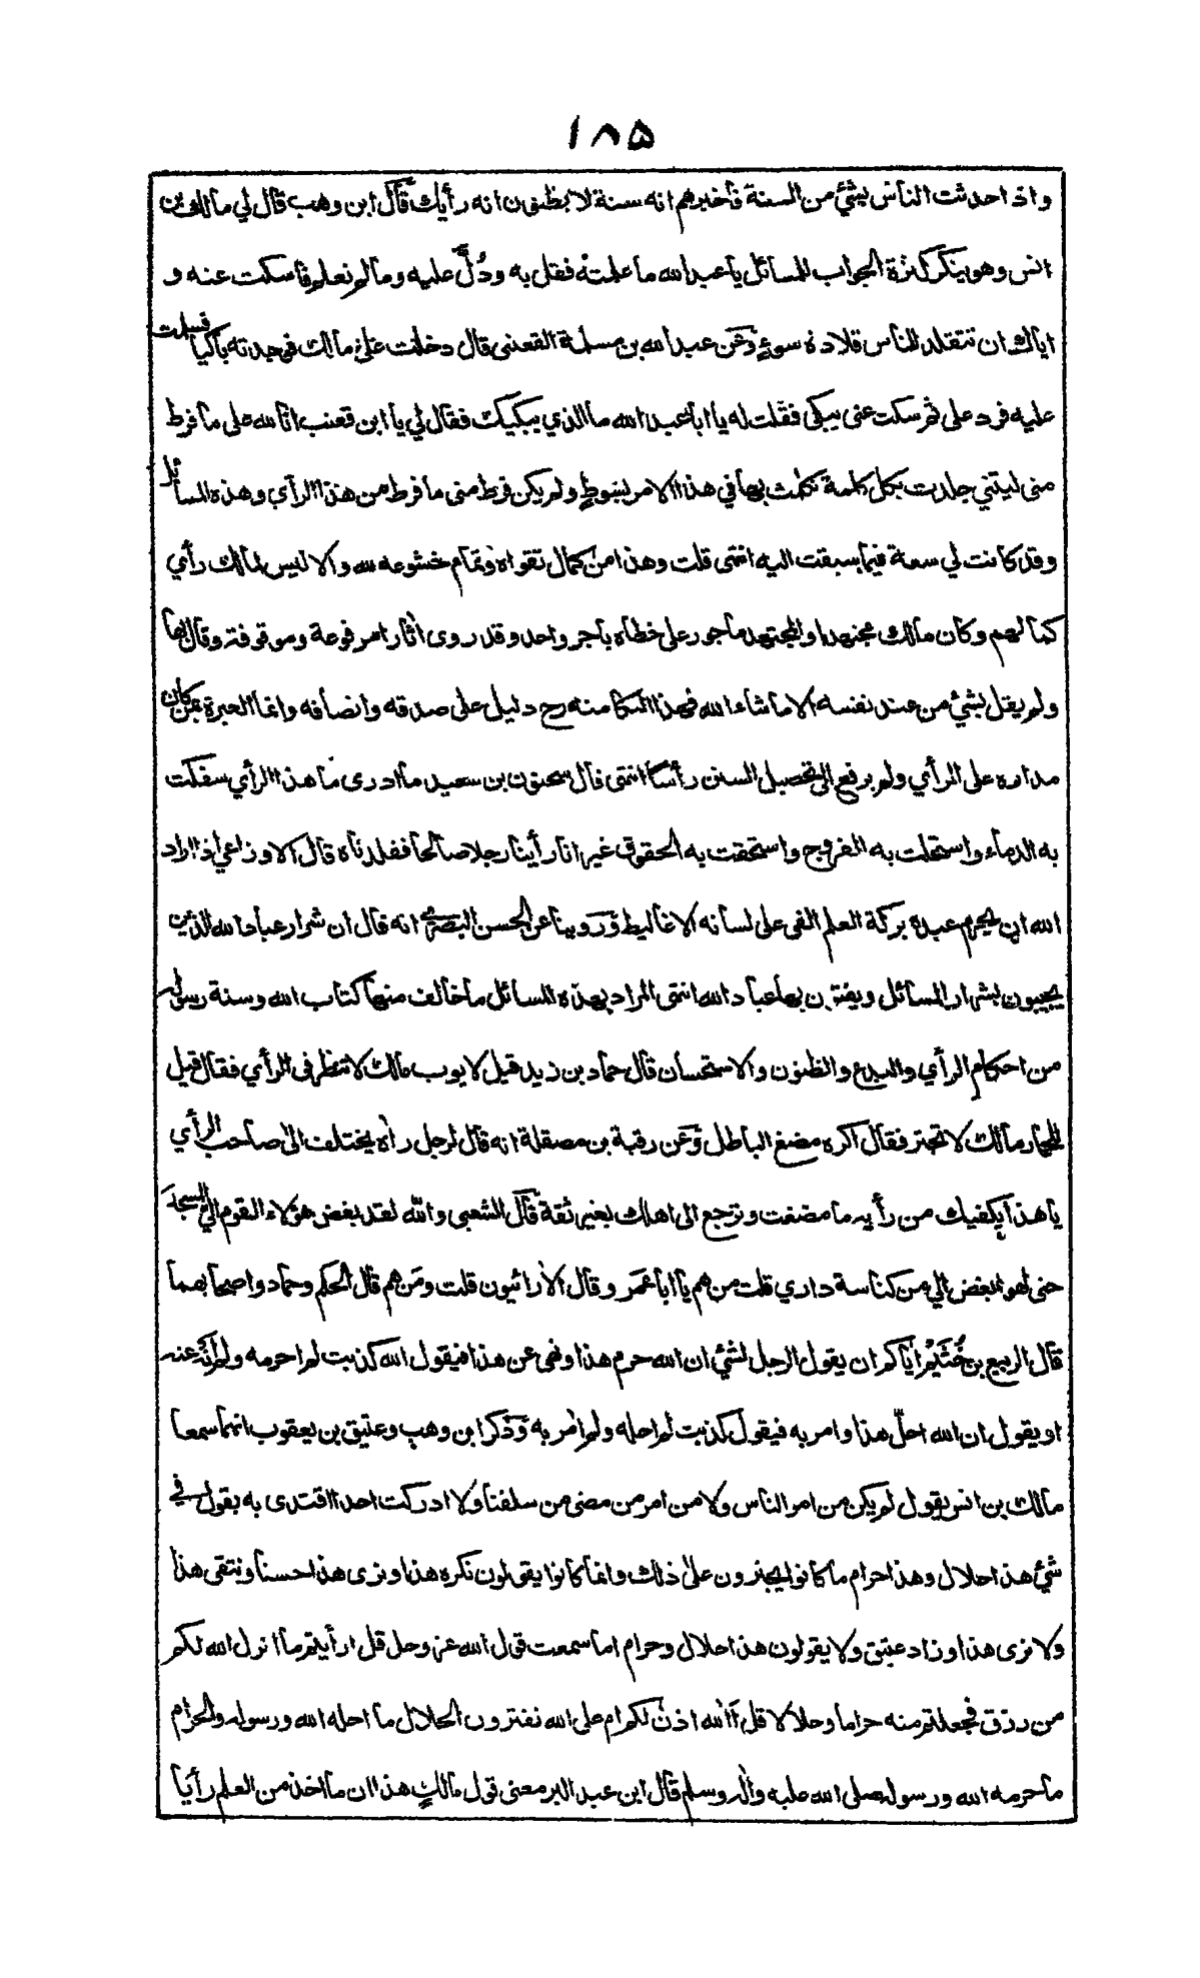 ١٨٥
واذا حدثت الناس بشئ من السنة فأخبرهم انه سنة لا يظنون انه رأيك قال ابن وهب قال لي مالك بن
انس وهو ينكر كثرة الجواب للمسائل يا عبد الله ما علمته فقل به ودُلَّ عليه وما لم تعلم فاسكت عنه و
اياك ان تتقلد للناس قلادة سوءٍ وعن عبد الله بن مسلمة القعنبى قال دخلت على مالك فوجدته باكيا فسلمت
عليه فرد على ثم سكت عنى يبكى فقلت له يا ابا عبد الله ما الذي يبكيك فقال لي يا ابن قعنب انا لله على ما فرط
منى ليتني جلدت بكل كلمة تكلمت بها في هذا الامر بسوطٍ ولم يكن فرط منى ما فرط من هذا الرأي وهذه المسائل
وقد كانت لي سعة فيما سبقت اليه انتهى قلت وهذا من كمال تقواه وتمام خشوعه لله والا ليس لمالك رأي
كما لهم وكان مالك مجتهدا والمجتهد مأجور على خطأه باجر واحد وقد روى اثارا مرفوعة وموقوفة وقال بها
ولم يقل بشئ من عند نفسه الا ما شاء الله فهذا البكا منه رح دليل على صدقه وانصافه وانما العبرة بمن كان
مداره على الرأي ولم يرفع الى تحصيل السنن رأسا انتهى قال سحنون بن سعيد ما ادرى ما هذا الرأي سفكت
به الدماء واستحلت به الفروج واستحقت به الحقوق غير انا رأينا رجلا صالحا فقلدناه قال الاوزاعي اذا اراد
الله ان يحرم عبده بركة العلم القى على لسانه الاغاليط وروينا عن الحسن البصري انه قال ان شرار عباد الله الذين
يجيبون بشرار المسائل ويفتون بها عباد الله انتهى المراد بهذه المسائل ما خالف منها كتاب الله وسنة رسوله
من احكام الرأي والبدع والظنون والاستحسان قال حماد بن زيد قيل لايوب مالك لا تنظر فى الرأي فقال قيل
للحمار مالك لا تجتر فقال اكره مضغ الباطل وعن رقبة بن مصقلة انه قال لرجل راه يختلف الى صاحب الرأي
يا هذا يكفيك من رأيه ما مضغت وترجع الى اهلك بغير ثقة قال الشعبى والله لقد بغض هؤلاء القوم الي المسجد
حتى لهو ابغض الي من كناسة داري قلت من هم يا ابا عمر وقال الارائيون قلت ومن هم قال الحكم وحماد واصحابهما
قال الربيع بن خُثَيْم اياكم ان يقول الرجل لشئ ان الله حرم هذا ونهى عن هذا فيقول الله كذبت لم احرمه ولم انه عنه
او يقول ان الله احلّ هذا وامر به فيقول كذبت لم احله ولم امر به وذكر ابن وهب وعتيق بن يعقوب انهما سمعا
مالك بن انس يقول لم يكن من امر الناس ولا من امر من مضى من سلفنا ولا ادركت احدا اقتدى به يقول في
شئ هذا حلال وهذا حرام ما كانوا يجترون على ذلك وانما كانوا يقولون نكره هذا ونرى هذا حسنا ونتقى هذا
ولا نرى هذا وزاد عتيق ولا يقولون هذا حلال وحرام اما سمعت قول الله عز وجل قل ارأيتم ما انزل الله لكم
من رزق فجعلتم منه حراما وحلالا قل آلله اذن لكم ام على الله تفترون الحلال ما احله الله ورسوله والحرام
ما حرمه الله ورسوله صلى الله عليه واله وسلم قال ابن عبد البر معنى قول مالكٍ هذا ان ما اخذ من العلم رأيا